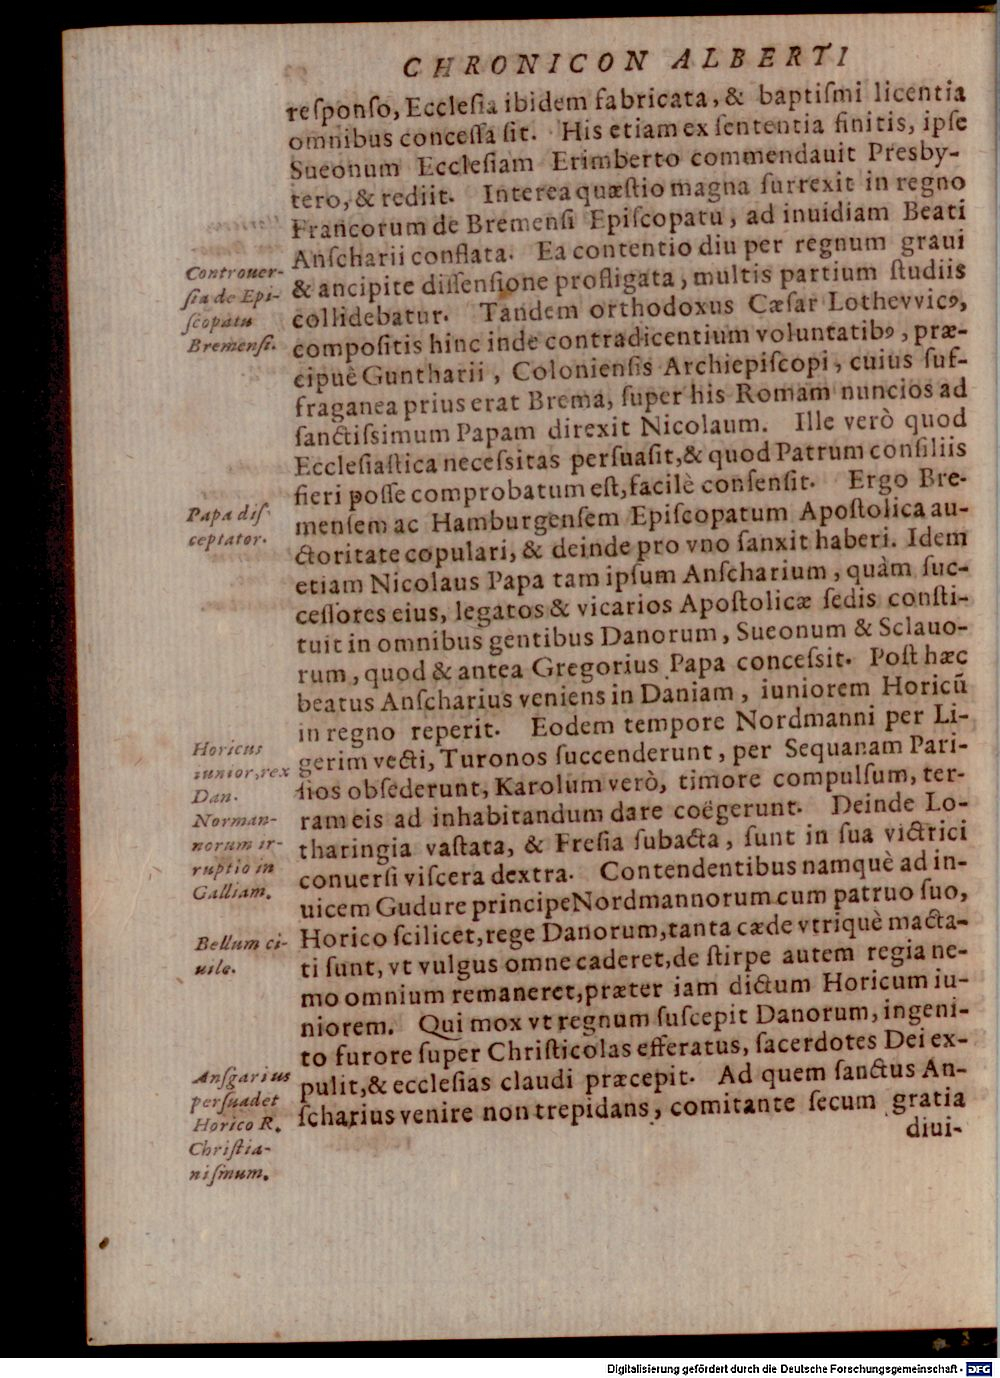 CHRONICON ALBERTI
reſponſo, Eccleſia ibidem fabricata, & baptiſmi licentia
omnibus conceſſa ſit. His etiam ex ſententia finitis, ipſe
Sueonum Eccleſiam Erimberto commendauit Presby-
tero, & rediit. Interea quæſtio magna ſurrexit in regno
Francorum de Bremenſi Epiſcopatu, ad inuidiam Beati
Anſcharii conflata. Ea contentio diu per regnum graui
Controuer-
ſia de Epi-
ſcopatu
Bremenſi.
& ancipite diſſenſione profligata, multis partium ſtudiis
collidebatur. Tandem orthodoxus Cæſar Lothevvicꝰ,
compoſitis hinc inde contradicentium voluntatibꝰ, præ-
cipuè Guntharii, Colonienſis Archiepiſcopi, cuius ſuf-
fraganea prius erat Brema, ſuper his Romam nuncios ad
ſanctiſsimum Papam direxit Nicolaum. Ille verò quod
Eccleſiaſtica neceſsitas perſuaſit, & quod Patrum conſiliis
fieri poſſe comprobatum eſt, facilè conſenſit. Ergo Bre-
Papa diſ-
ceptator.
menſem ac Hamburgenſem Epiſcopatum Apoſtolica au-
ctoritate copulari, & deinde pro vno ſanxit haberi. Idem
etiam Nicolaus Papa tam ipſum Anſcharium, quàm ſuc-
ceſſores eius, legatos & vicarios Apoſtolicæ ſedis conſti-
tuit in omnibus gentibus Danorum, Sueonum & Sclauo-
rum, quod & antea Gregorius Papa conceſsit. Poſt hæc
beatus Anſcharius veniens in Daniam, iuniorem Horicū
in regno reperit. Eodem tempore Nordmanni per Li-
Horicus
iunior, rex
Dan.
Norman-
norum ir-
ruptio in
Galliam.
gerim vecti, Turonos ſuccenderunt, per Sequanam Pari-
ſios obſederunt, Karolum verò, timore compulſum, ter-
ram eis ad inhabitandum dare coëgerunt. Deinde Lo-
tharingia vaſtata, & Freſia ſubacta, ſunt in ſua victrici
conuerſi viſcera dextra. Contendentibus namquè ad in-
uicem Gudure principe Nordmannorum cum patruo ſuo,
Bellum ci-
uile.
Horico ſcilicet, rege Danorum, tanta cæde vtriquè macta-
ti ſunt, vt vulgus omne caderet, de ſtirpe autem regia ne-
mo omnium remaneret, præter iam dictum Horicum iu-
niorem. Qui mox vt regnum ſuſcepit Danorum, ingeni-
to furore ſuper Chriſticolas efferatus, ſacerdotes Dei ex-
Anſgarius
perſuadet
Horico R.
Chriſtia-
niſmum.
pulit, & eccleſias claudi præcepit. Ad quem ſanctus An-
ſcharius venire non trepidans, comitante ſecum gratia
diui-
Digitalisierung gefördert durch die Deutsche Forschungsgemeinschaft - DFG